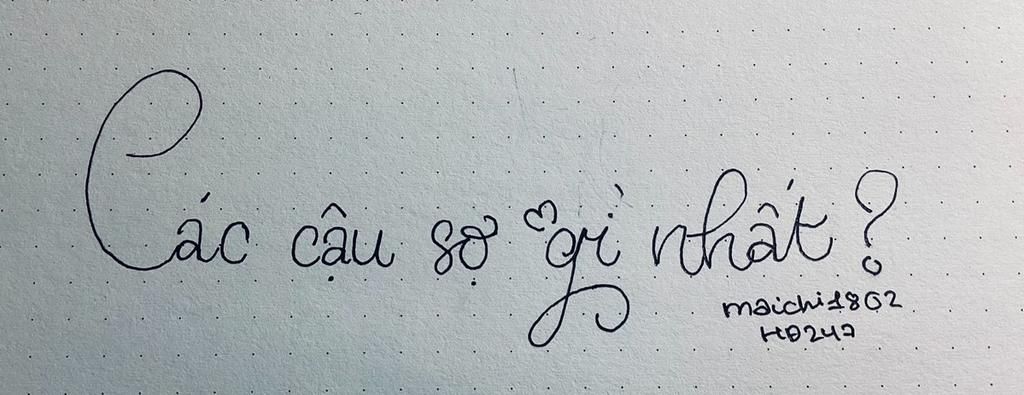 Các cậu sợ gì nhất?
maichi1802
HD247